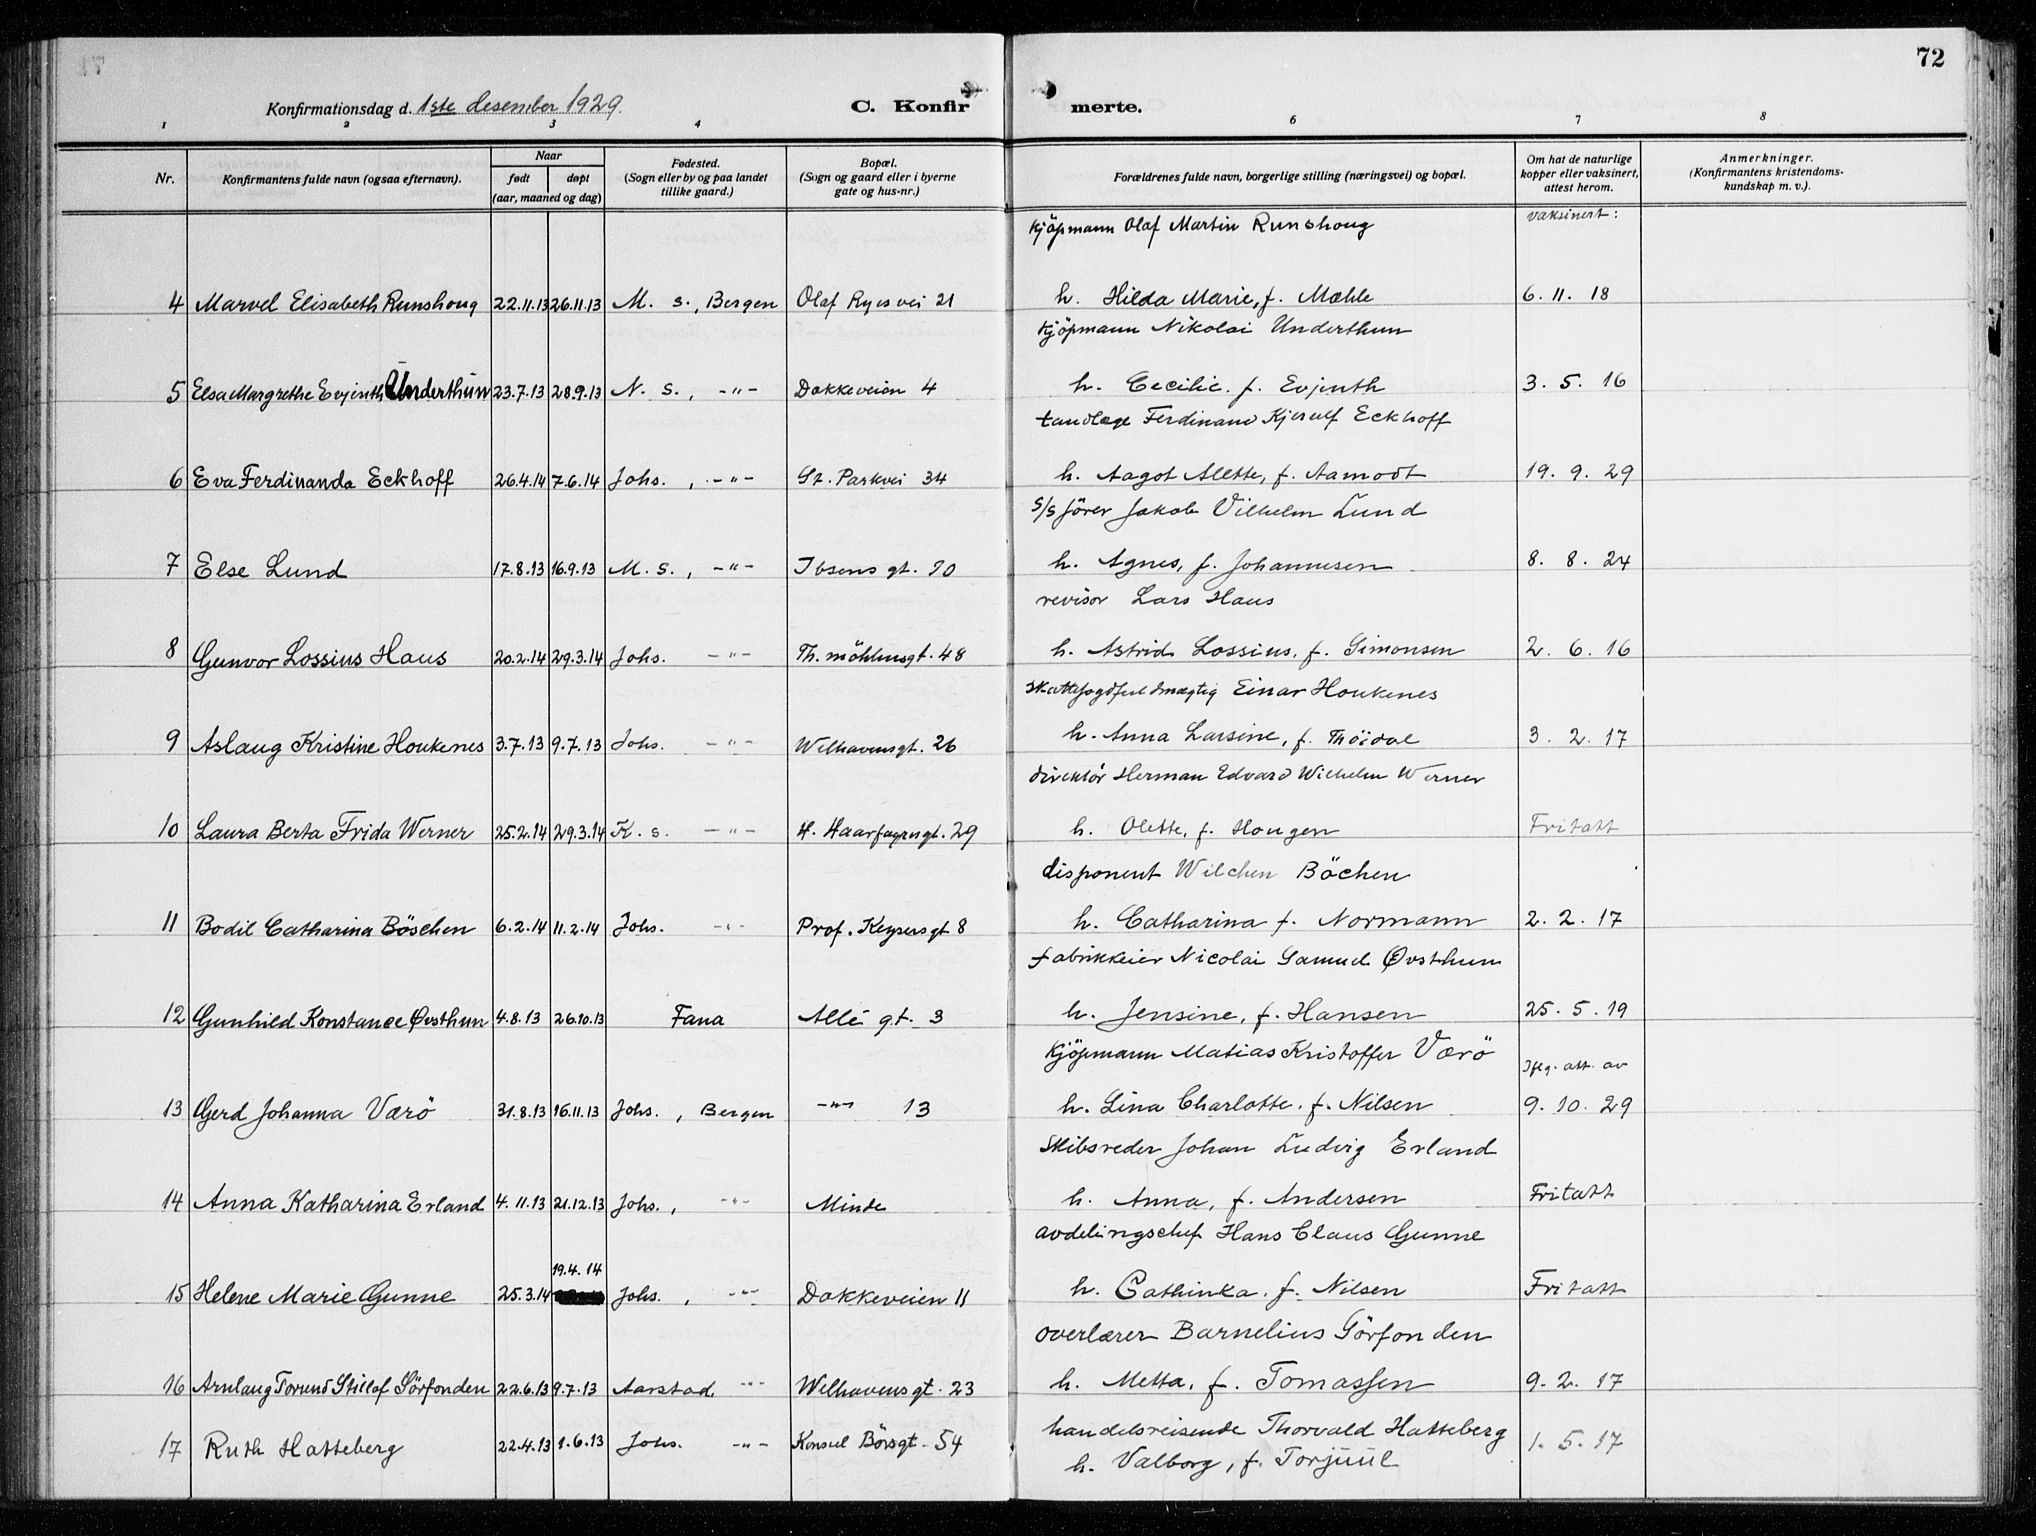 72
Konfirmationsdag d. 1ste desember 1929.
C. Konfirmerte.
1 2 3 4 6 7 8
Nr.
Konfirmantens fulde navn (ogsaa efternavn).
Naar
født døpt
(aar, maaned og dag)
Fødested.
(Sogn eller by og paa landet
tillike gaard.)
Bopæl.
(Sogn og gaard eller i byerne
gate og hus-nr.)
Forældrenes fulde navn, borgerlige stilling (næringsvei) og bopæl.
Om hat de naturlige
kopper eller vaksinert,
attest herom.
Anmerkninger.
(Konfirmantens kristendoms-
kundskap m. v.).
Kjöpmann Olaf Martin Runshoug vaksinert:
4 Marvel Elisabeth Runshoug 22.11.13 26.11.13 M. s., Bergen Olaf Ryes vei 21 h. Hilda Marie, f. Mæhle 6. 11. 18
Kjöpmann Nikolai Underthun
5 Elsa Margrethe Evjenth Underthun 23.7.13 28.9.13 N. s., -"- Dokkeveien 4 h. Cecilie. f. Evjenth 3. 5. 16
tandlæge Ferdinand Kjerulf Eckhoff
6 Eva Ferdinanda Eckhoff 26.4.14 7.6.14 Johs. , -"- St. Parkvei 34 h. Aagot Alette, f. Aamodt 19. 9. 29
S/S förer Jakob Vilhelm Lund
7 Else Lund 17.8.13 16.9.13 M. s., -"- Ibsens gt. 70 h. Agnes, f. Johannesen 8. 8. 24
revisor Lars Haus
8 Gunvor Lossius Haus 20.2.14 29.3.14 Johs. -"- Th. möhlensgt. 48 h. Astrid Lossius, f. Simonsen 2. 6. 16
skattefogdfuldmægtig Einar Houkenes
9 Aslaug Kristine Houkenes 3.7.13 9.7.13 Johs. -"- Welhavensgt. 26 h. Anna Larsine, f. Thöidal 3. 2. 17
direktör Herman Edvard Wilhelm Werner
10 Laura Berta Frida Werner 25.2.14 29.3.14 K. s. -"- H. Haarfagresgt. 29 h. Olette, f. Hougen Fritatt
disponent Wilchen Böchen
11 Bodil Catharina Böschen 6.2.14 11.2.14 Johs. -"- Prof. Keysersgt 8 h. Catharina f. Normann 2. 2. 17
fabrikkeier Nicolai Samuel Øvsthun
12 Gunhild Konstance Øvsthun 4.8.13 26.10.13 Fana Allé gt. 3 h. Jensine, f. Hansen 25. 5. 19
Kjöpmann Matias Kristoffer Værö Iflg. att. av
13 Gerd Johanna Værö 31.8.13 16.11.13 Johs. , Bergen -"- 13 h. Lina Charlotte. f. Nilsen 9. 10. 29
Skibsreder Johan Ludvig Erland
14 Anna Katharina Erland 4.11.13 21.12.13 Johs., -"- Minde h. Anna, f. Andersen Fritatt
avdelingschef Hans Claus Gunne
19.4.14
15 Helene Marie Gunne 25.3.14 Johs. , -"- Dokkeveien 11 h. Cathinka. f. Nilsen Fritatt
overlærer Barnelius Sörfonden
16 Arnlaug Torund Stillof Sörfonden 22.6.13 9.7.13 Aarstad -"- Welhavens gt. 23 h. Metta, f. Tomassen 9. 2. 17
handelsreisende Thorvald Hatteberg
17 Ruth Hatteberg 22.4.13 1.6.13 Johs. -"- Konsul Börsgt. 54 h. Valborg, f. Torjuul 1. 5. 17